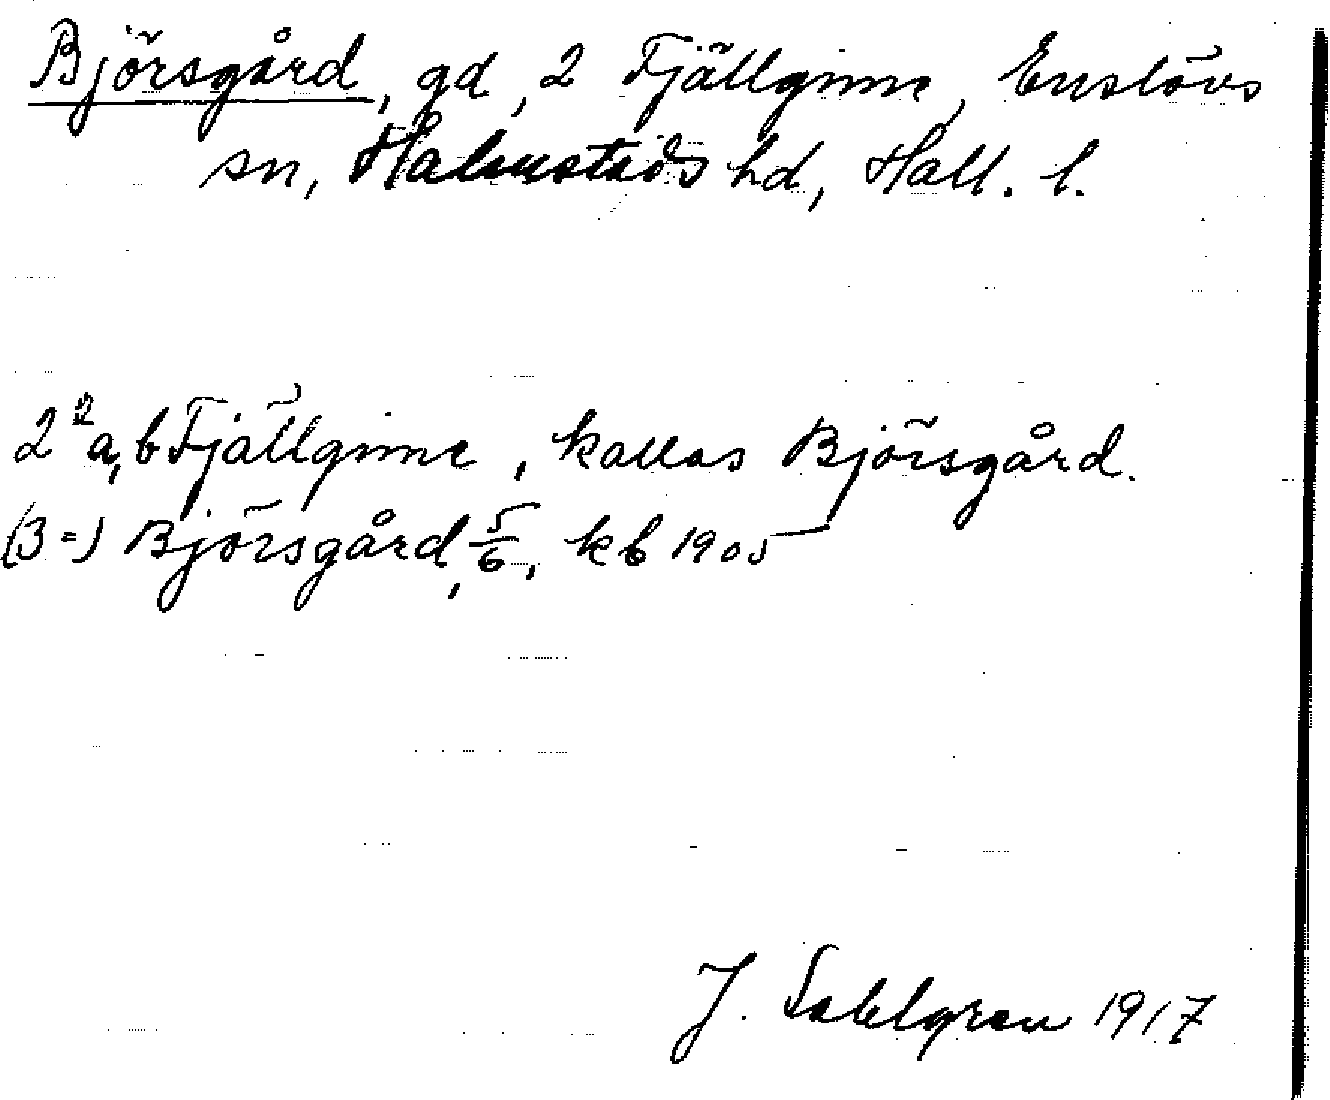 Björsgård, gd, 2 Fjällginne, Enslövs
sn, Halmstads hd, Hall. l.
2²a,b Fjällginne, kallas Björsgård.
(3=) Björsgård, 5/6, kb 1905
J. Sahlgren 1917